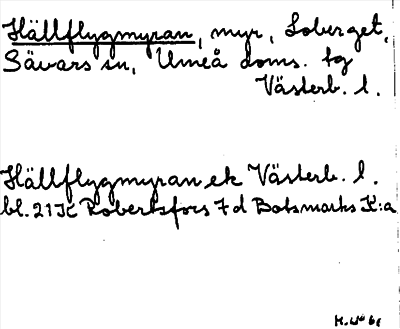 Hällflygmyran, myr, Loberget,
Sävars sn, Umeå doms. tg
Västerb. l.
Hällflygmyran ek Västerb. l.
bl. 21K Robertsfors 7d Botsmarks K:a